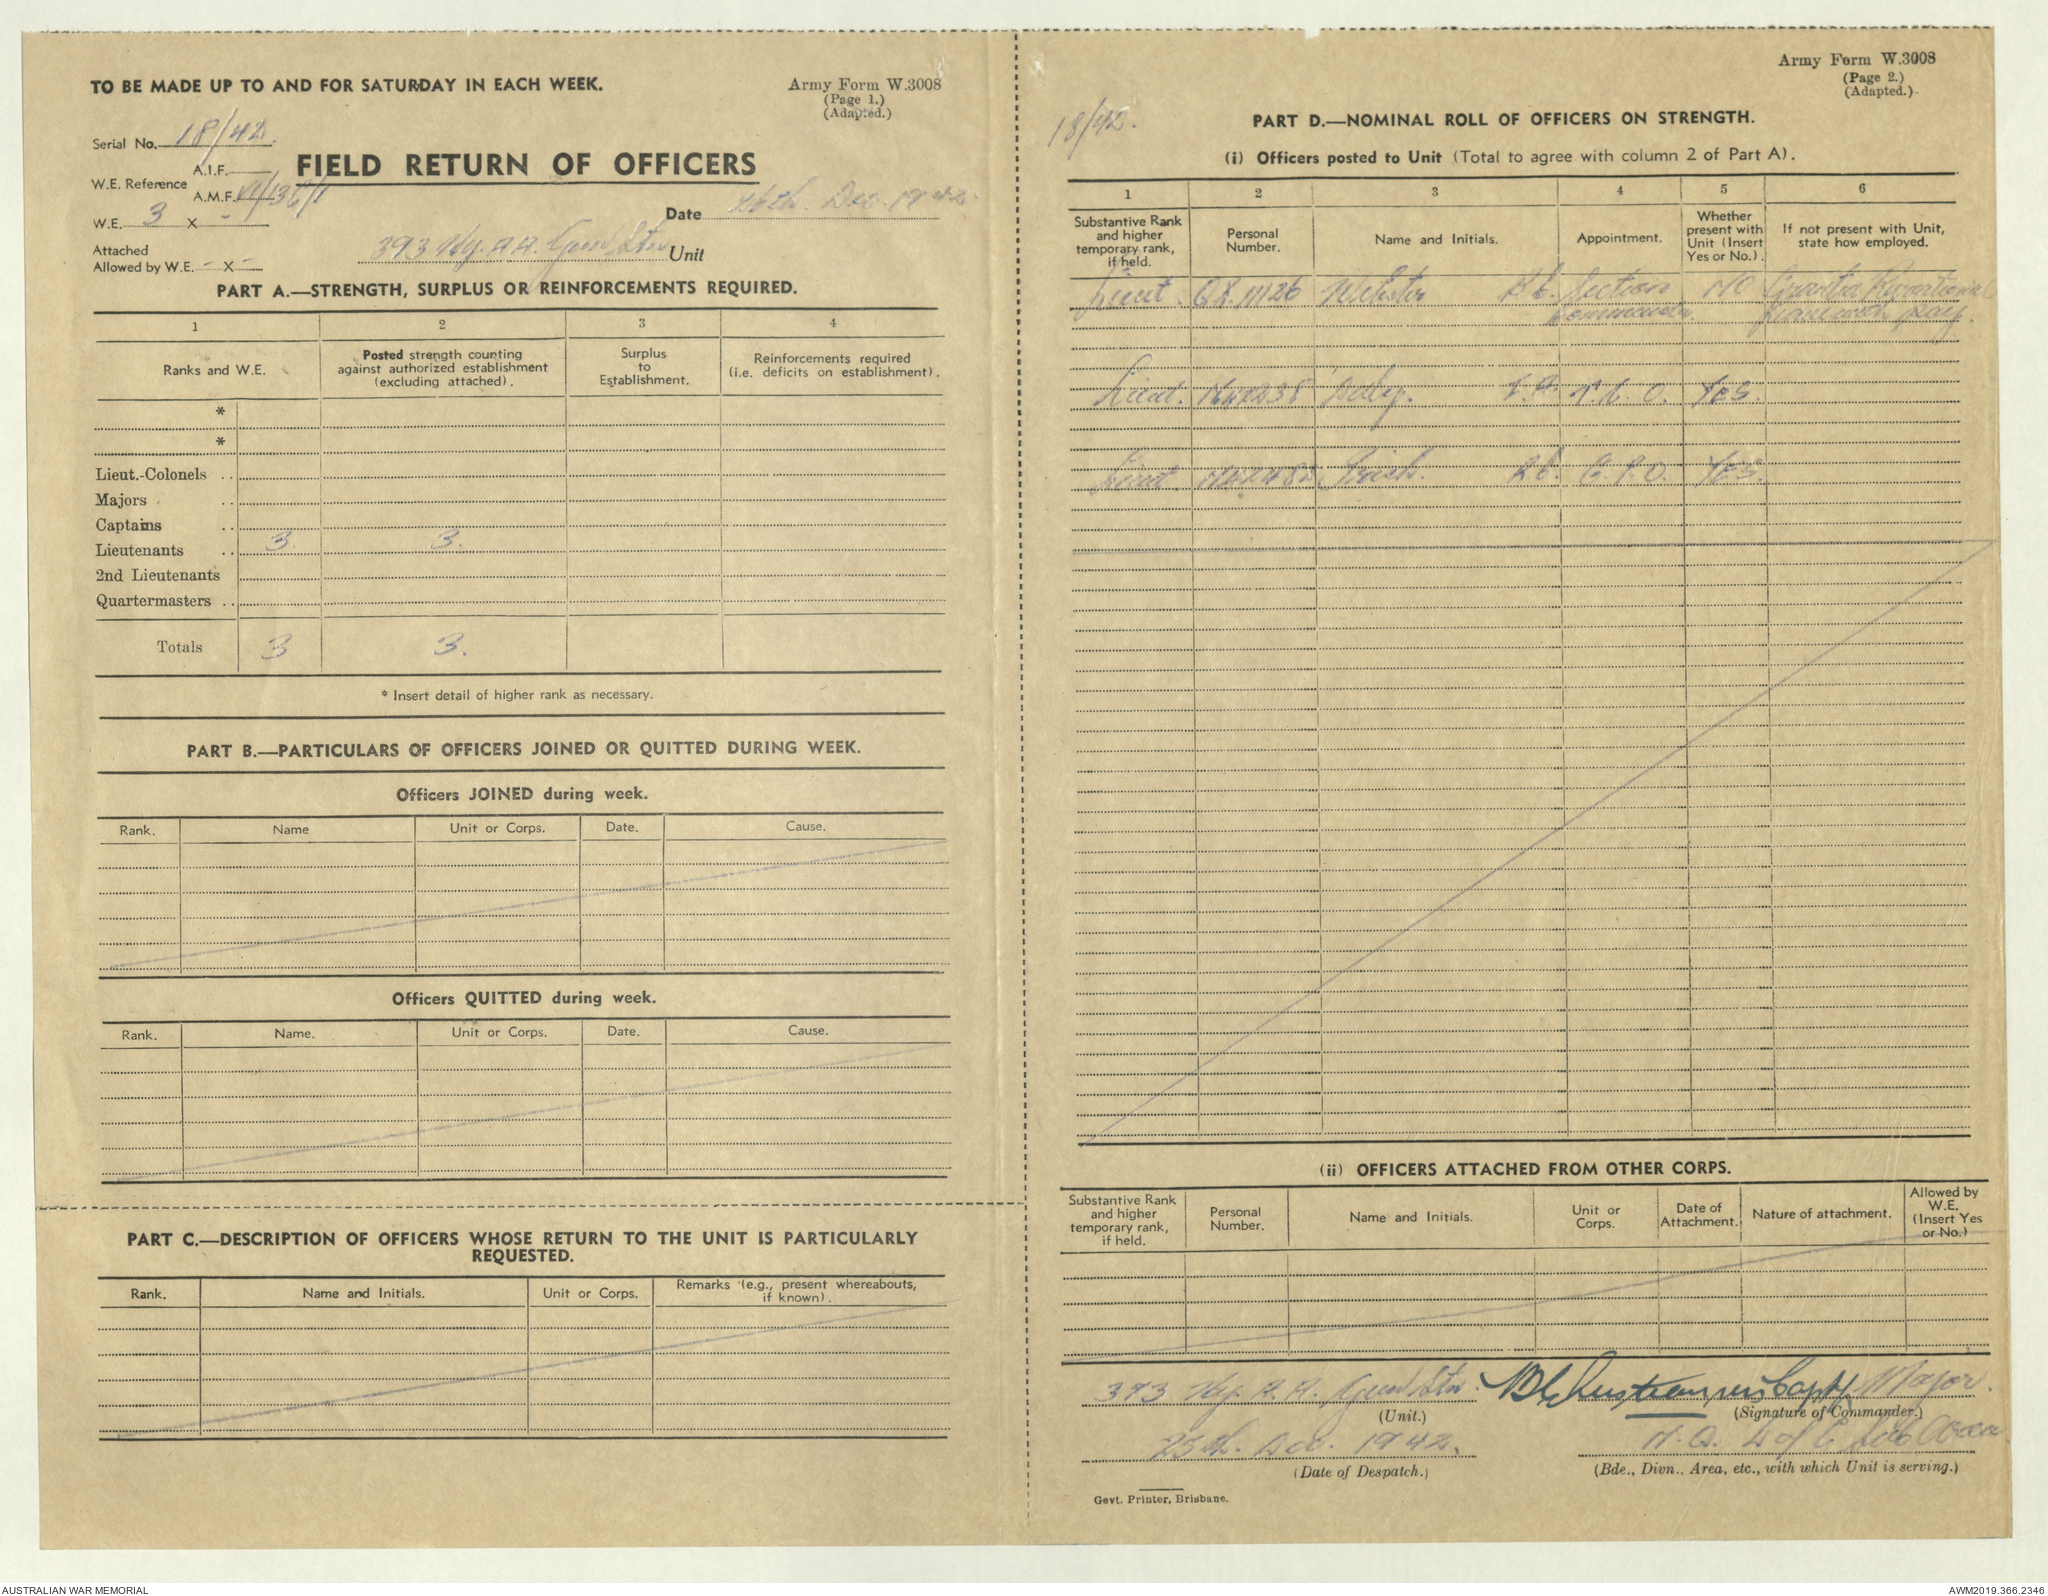 TO BE MADE UP TO AND FOR SATURDAY IN EACH WEEK.
Army Form W.3008
(Page 1.)
(Adapted.)
Serial No. 18/42.
FIELD RETURN OF OFFICERS
W.E. Reference
A.I.F.
A.M.F.
W.E. 3 X -
Date 26th. Dec. 1942.
Attached
Allowed by W.E. - X -
393 Hy. A.A. Gun Stn Unit
PART A.—STRENGTH, SURPLUS OR REINFORCEMENTS REQUIRED.
1 2 3 4
Ranks and W.E.
Posted strength counting against authorized establishment (excluding attached).
Surplus to Establishment.
Reinforcements required (i.e. deficits on establishment).
*
*
Lieut.-Colonels ..
Majors ..
Captains ..
Lieutenants .. 3. 3.
2nd Lieutenants
Quartermasters ..
Totals 3 3.
* Insert detail of higher rank as necessary.
PART B.—PARTICULARS OF OFFICERS JOINED OR QUITTED DURING WEEK.
Officers JOINED during week.
Rank. Name Unit or Corps. Date. Cause.
Officers QUITTED during week.
Rank. Name. Unit or Corps. Date. Cause.
PART C.—DESCRIPTION OF OFFICERS WHOSE RETURN TO THE UNIT IS PARTICULARLY
REQUESTED.
Rank. Name and Initials. Unit or Corps. Remarks (e.g., present whereabouts, if known).
Army Form W.3008
(Page 2.)
(Adapted.)
18/42.
PART D.—NOMINAL ROLL OF OFFICERS ON STRENGTH.
(i) Officers posted to Unit (Total to agree with column 2 of Part A).
1 2 3 4 5 6
Substantive Rank and higher temporary rank, if held.
Personal Number.
Name and Initials.
Appointment.
Whether present with Unit (Insert Yes or No.).
If not present with Unit, state how employed.
Lieut. QX.11126 Webster Section NO
Commander
Lieut. YES.
Lieut. G.P.O. YES.
(ii) OFFICERS ATTACHED FROM OTHER CORPS.
Substantive Rank and higher temporary rank, if held.
Personal Number.
Name and Initials.
Unit or Corps.
Date of Attachment.
Nature of attachment.
Allowed by W.E. (Insert Yes or No.)
393 Hy. A.A. Gun Stn. Capt Major.
(Unit.) (Signature of Commander.)
25th. Dec. 1942. H.Q. L of C Sub Area
(Date of Despatch.) (Bde., Divn., Area, etc., with which Unit is serving.)
Govt. Printer, Brisbane.
AUSTRALIAN WAR MEMORIAL
AWM2019.366.2346